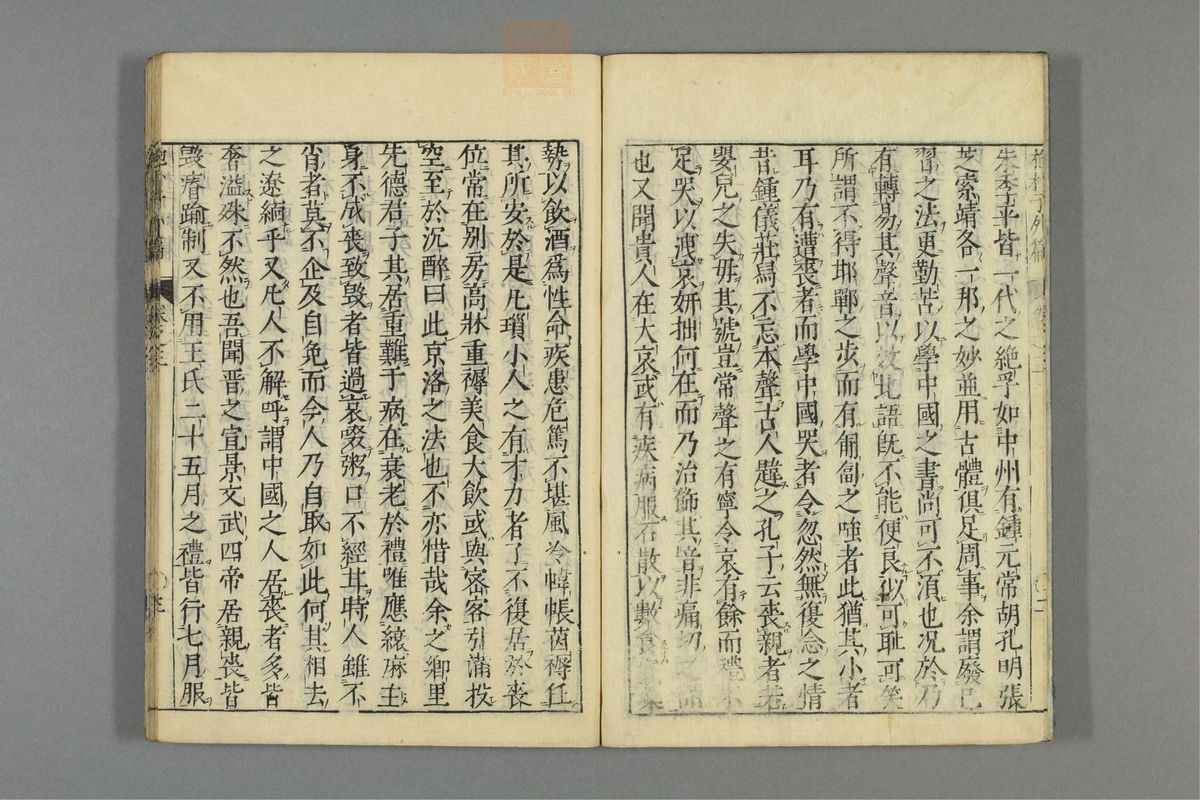 朱季平皆一代之絶手如中州有鍾元常胡孔明張
芝索靖各一邦之妙並用古體俱足周事余謂廢已
習之法更勤苦以學中國之書尚可不湏也况於乃
有轉易其聲音以效北語旣不能便良似可耻可笑
所謂不得邯鄲之步而有匍匐之嗤者此猶其小者
耳乃有遭喪者而學中國哭者令忽然無復念之情
昔鍾儀莊舄不忘本聲古人韙之孔子云喪親者若
嬰兒之失母其號豈常聲之有寧令哀有餘而禮不
足哭以洩哀妍拙何在而乃治飾其音非痛切之謂
也又聞貴人在大哀或有疾病服石散以數食
勢以飲酒爲性命疾患危篤不堪風冷幃帳茵褥任
其所安於是凡瑣小人之有才力者了不復居於喪
位常在别房高牀重褥美食大飲或與密客引滿投
空至於沉醉曰此京洛之法也不亦惜哉余之鄉里
先德君子其居重難于病在衰老於禮唯應縗麻在
身不成喪致毀者皆過哀啜粥口不經甘時人雖不
肖者莫不企及自免而今人乃自取如此何其相去
之遼緬乎又凡人不解呼謂中國之人居喪者多皆
奢溢殊不然也吾聞晋之宣景文武四帝居親喪皆
毁瘠踰制又不用王氏二十五月之禮皆行七月服